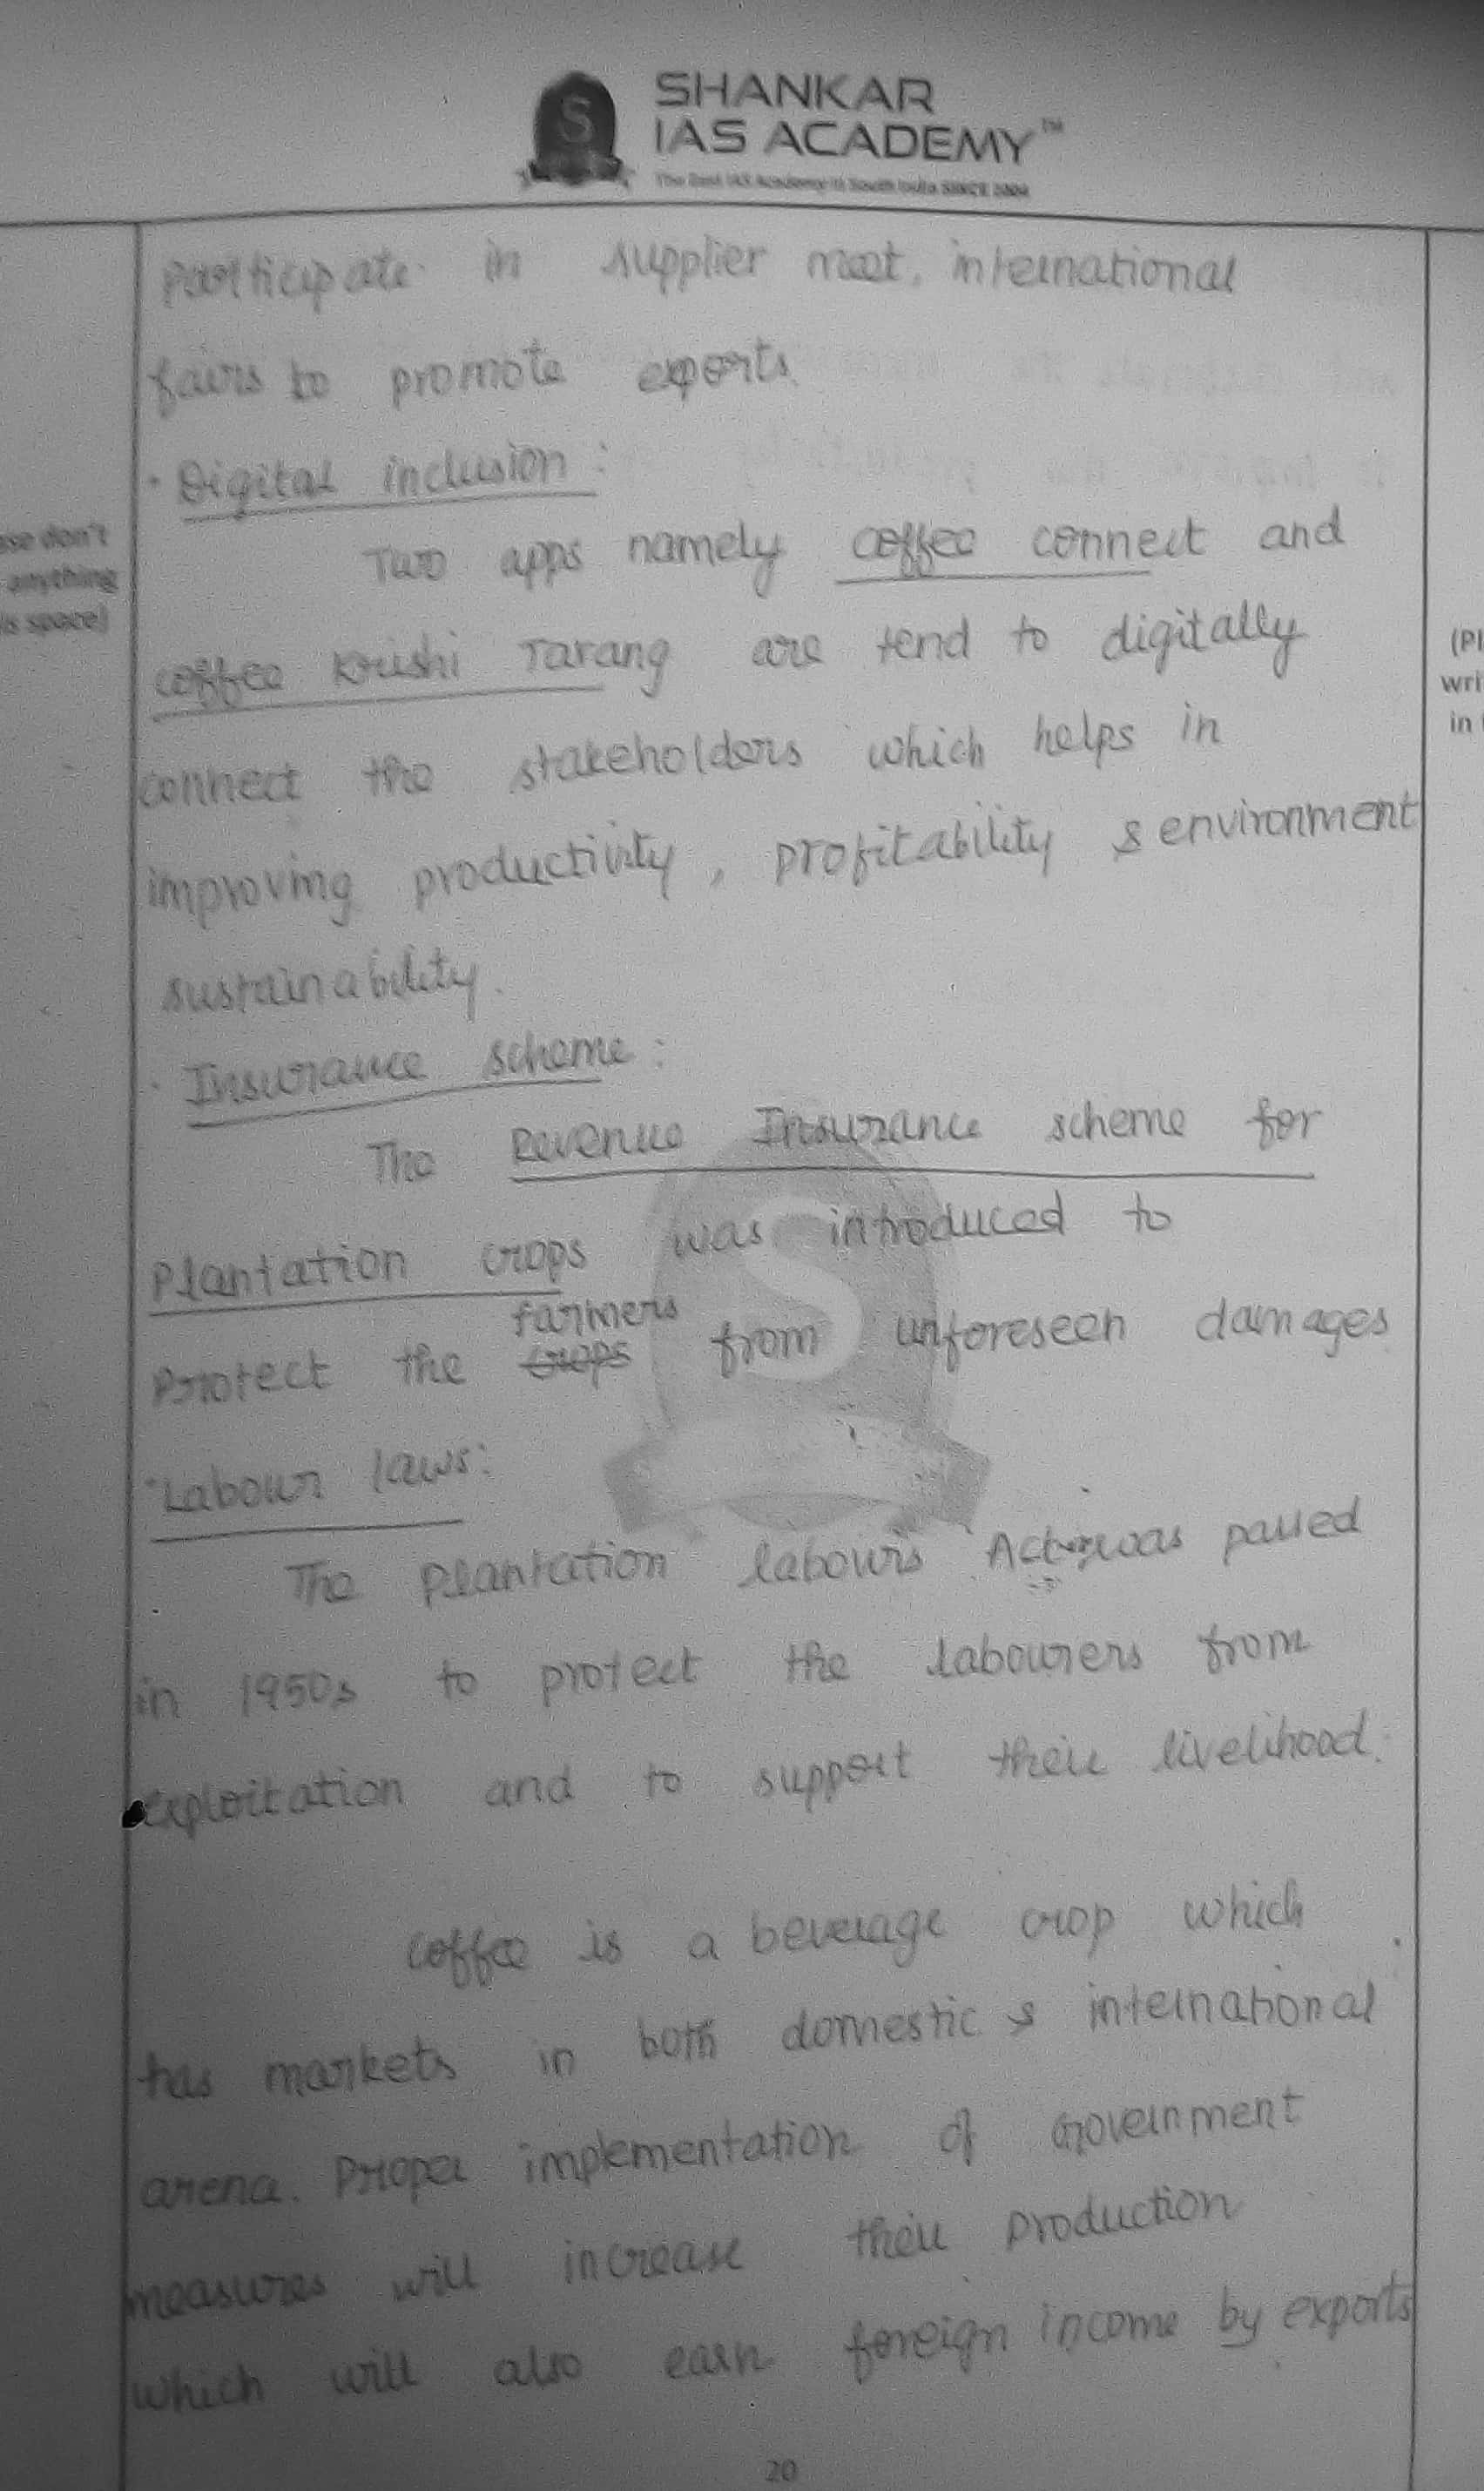 SHANKAR
IAS ACADEMY™
The Best IAS Academy in South India SINCE 2004
Participate in supplier meet, international
fairs to promote exports.
· Digital inclusion :
Two apps namely coffee connect and
coffee Krishi Tarang are tend to digitally
connect the stakeholders which helps in
improving productivity, profitability & environment
sustainability.
· Insurance scheme :
The Revenue Insurance scheme for
Plantation crops was introduced to
farmers
Protect the crops from unforeseen damages.
· Labour laws:
The Plantation labours Act was passed
in 1950s to protect the labourers from
exploitation and to support their livelihood.
coffee is a beverage crop which
has markets in both domestic & international
arena. Proper implementation of Government
measures will increase their production
which will also earn foreign income by exports
don't
anything
space)
(Pl
wri
in
S
20